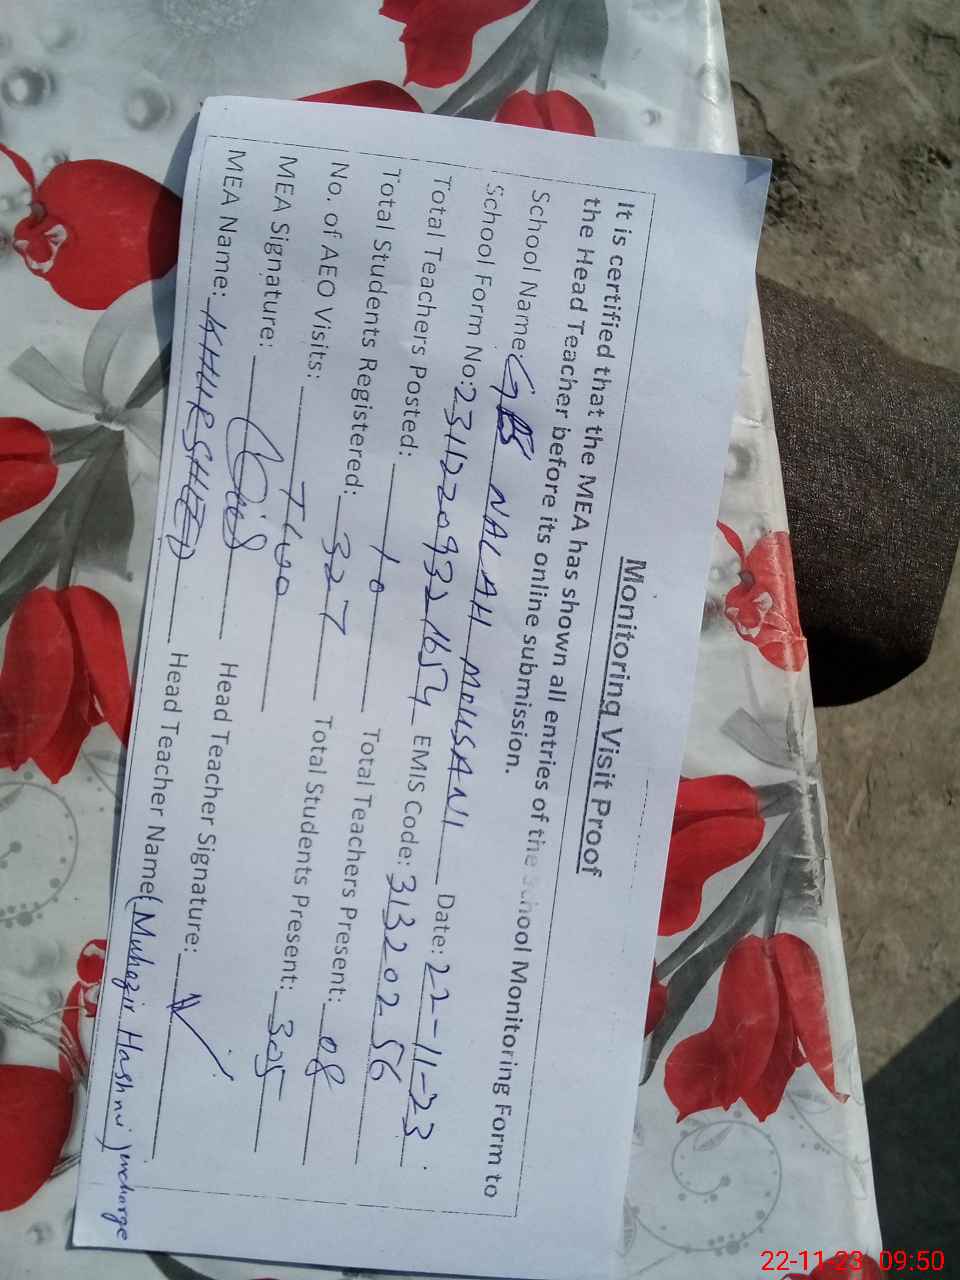 Monitoring Visit Proof
It is certified that the MEA has shown all entries of the School Monitoring Form to
the Head Teacher before its online submission.
School Name: GPS NALAH MOUSANI Date: 22-11-23
School Form No: 23112209321654 EMIS Code: 31320256
Total Teachers Posted: 10 Total Teachers Present: 08
Total Students Registered: 327 Total Students Present: 305
No. of AEO Visits: Two
MEA Signature: Head Teacher Signature:
MEA Name: KHURSHEED Head Teacher Name (Muhazir Hashmi) incharge
22-11-23 09:50